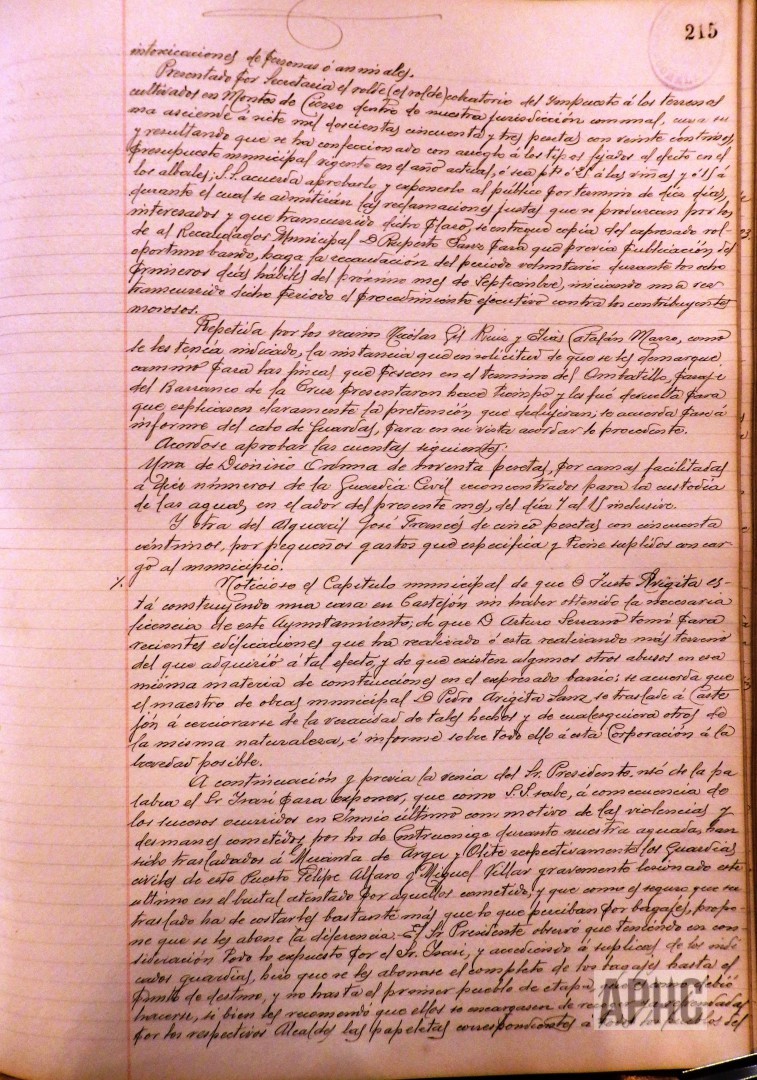 215
intoxicaciones de personas ó animales.
Presentado por Secretaria el rolde (el rolde) cobratorio del Impuesto á los terrenos
cultivados en Montes de Cierzo dentro de nuestra jurisdicción comunal, cuya su-
ma asciende á siete mil doscientas cincuenta y tres pesetas con veinte centimos,
y resultando que se ha confeccionado con arreglo á los tipos fijados al efecto en el
presupuesto municipal vigente en el año actual, ó sea pts á las viñas y á
los albales; S.S. acuerda aprobarlo y exponerlo al público por termino de diez dias,
durante el cual se admitirán las reclamaciones justas que se produzcan por los
interesados y que transcurrido dicho plazo, se entregue copia del expresado rol-
de al Recaudador Municipal D. Ruperto Sanz para que previa publicación del
oportuno bando, haga la recaudación del periodo voluntario durante los ocho
primeros dias hábiles del próximo mes de Septiembre, iniciando una vez
transcurrido dicho periodo el procedimiento ejecutivo contra los contribuyentes
morosos.
Repetida por los vecinos Nicolas Gil Ruiz y Elias Catalán Marzo, como
se les tenía indicado, la instancia que en solicitud de que se les demarque
camino para las fincas que poseen en el termino del Ombatillo, paraje
del Barranco de la Cruz presentaron hace tiempo y les fué devuelta para
que esplicasen claramente la pretensión que dedujeran; se acuerda pase á
informe del cabo de Guardas, para en su vista acordar lo procedente.
Acordose aprobar las cuentas siguientes:
Una de Dionisio de noventa pesetas, por camas facilitadas
á diez números de la Guardia Civil reconcentrados para la custodia
de las aguas en el ador del presente mes, del día 7 al 15 inclusive.
Y otra del Alguacil José Francés de cinco pesetas con cincuenta
céntimos, por pequeños gastos que especifica y tiene suplidos con car-
go al municipio.
Noticioso el Capitulo municipal de que D. Justo Arigita es-
tá construyendo una casa en Castejón sin haber obtenido la necesaria
licencia de este Ayuntamiento; de que D. Arturo Serrano tomó para
recientes edificaciones que ha realizado ó esta realizando más terreno
del que adquirió á tal efecto, y de que existen algunos otros abusos en esa
misma materia de construcciones en el expresado barrio; se acuerda que
el maestro de obras municipal D. Pedro Arigita Sanz se traslade á Caste-
jón á cerciorarse de la veracidad de tales hechos y de cualesquiera otros de
la misma naturaleza, é informe sobre todo ello á esta Corporación á la
brevedad posible.
A continuación y previa la venia del Sr. Presidente usó de la pa-
labra el Sr. para exponer; que como S.S. sabe, á consecuencia de
los sucesos ocurridos en Junio último con motivo de las violencias y
desmanes cometidos por los de Cintruenigo durante nuestra aguada, han
sido trasladados á Miranda de Arga y Olite respectivamente los Guardias
civiles de este Puesto Felipe Alfaro y Miguel Villar gravemente lesionado este
ultimo en el brutal atentado por aquellos cometido; y que como es seguro que su
traslado ha de costarles bastante más que lo que perciban por bagajes, propo-
ne que se les abone la diferencia. El Sr. Presidente observó que teniendo en con-
sideración todo lo expuesto por el Sr. y accediendo á suplicas de los indi-
cados guardias, hizo que se les abonase el completo de los bagajes hasta el
punto de destino, y no hasta el primer pueblo de etapa, debió
hacerse, si bien les recomendó que ellos se encargasen de
por los respectivos Alcaldes las papeletas correspondientes á
APHC